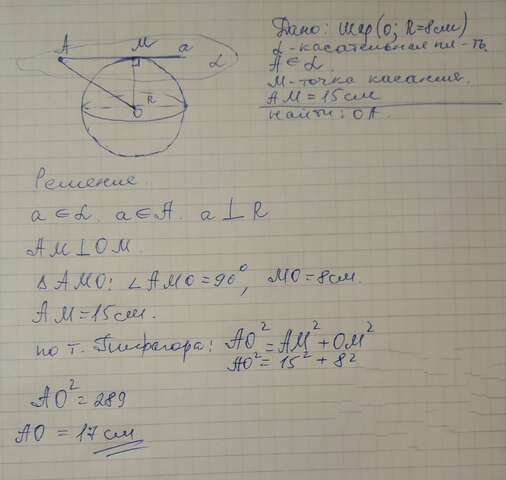 A M a α
R
O
Дано: Шар (О; R=8см)
α - касательная пл-ть
A ∈ α.
М-точка касания.
AM = 15 см
Найти: ОА.
Решение
a ∈ α. a ∈ A. a ⊥ R
AM ⊥ OM.
Δ AMO: ∠ AMO = 90°, MO = 8см.
AM = 15 см.
по т. Пифагора: AO² = AM² + OM²
AO² = 15² + 8²
AO² = 289
AO = 17 см